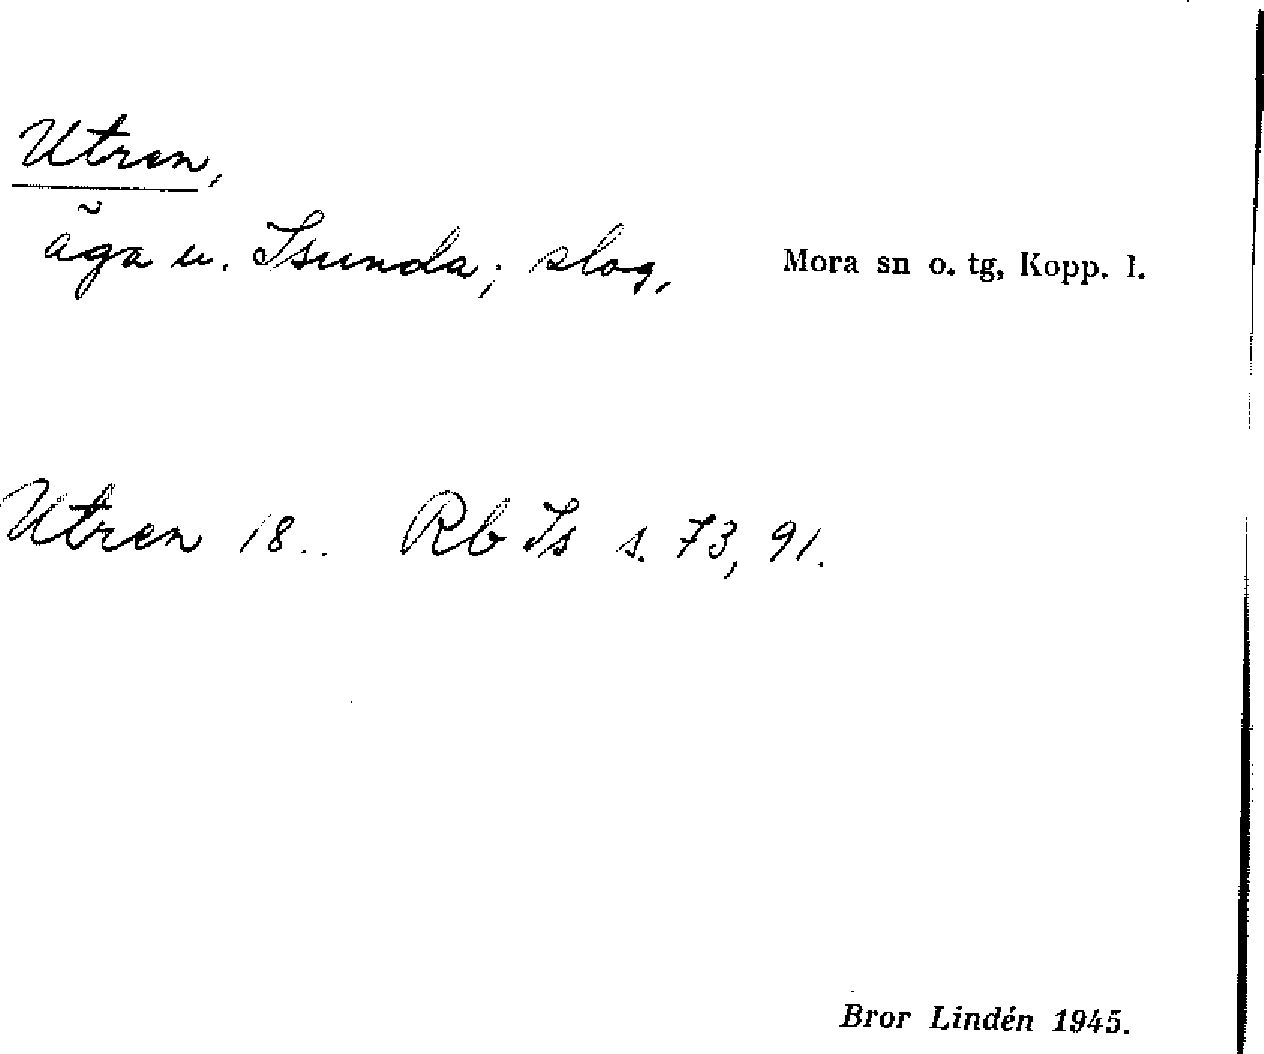 Utren,
äga u. Isunda; slog,
Mora sn o. tg, Kopp. l.
Utren 18.. Rb Is s. 73, 91.
Bror Lindén 1945.